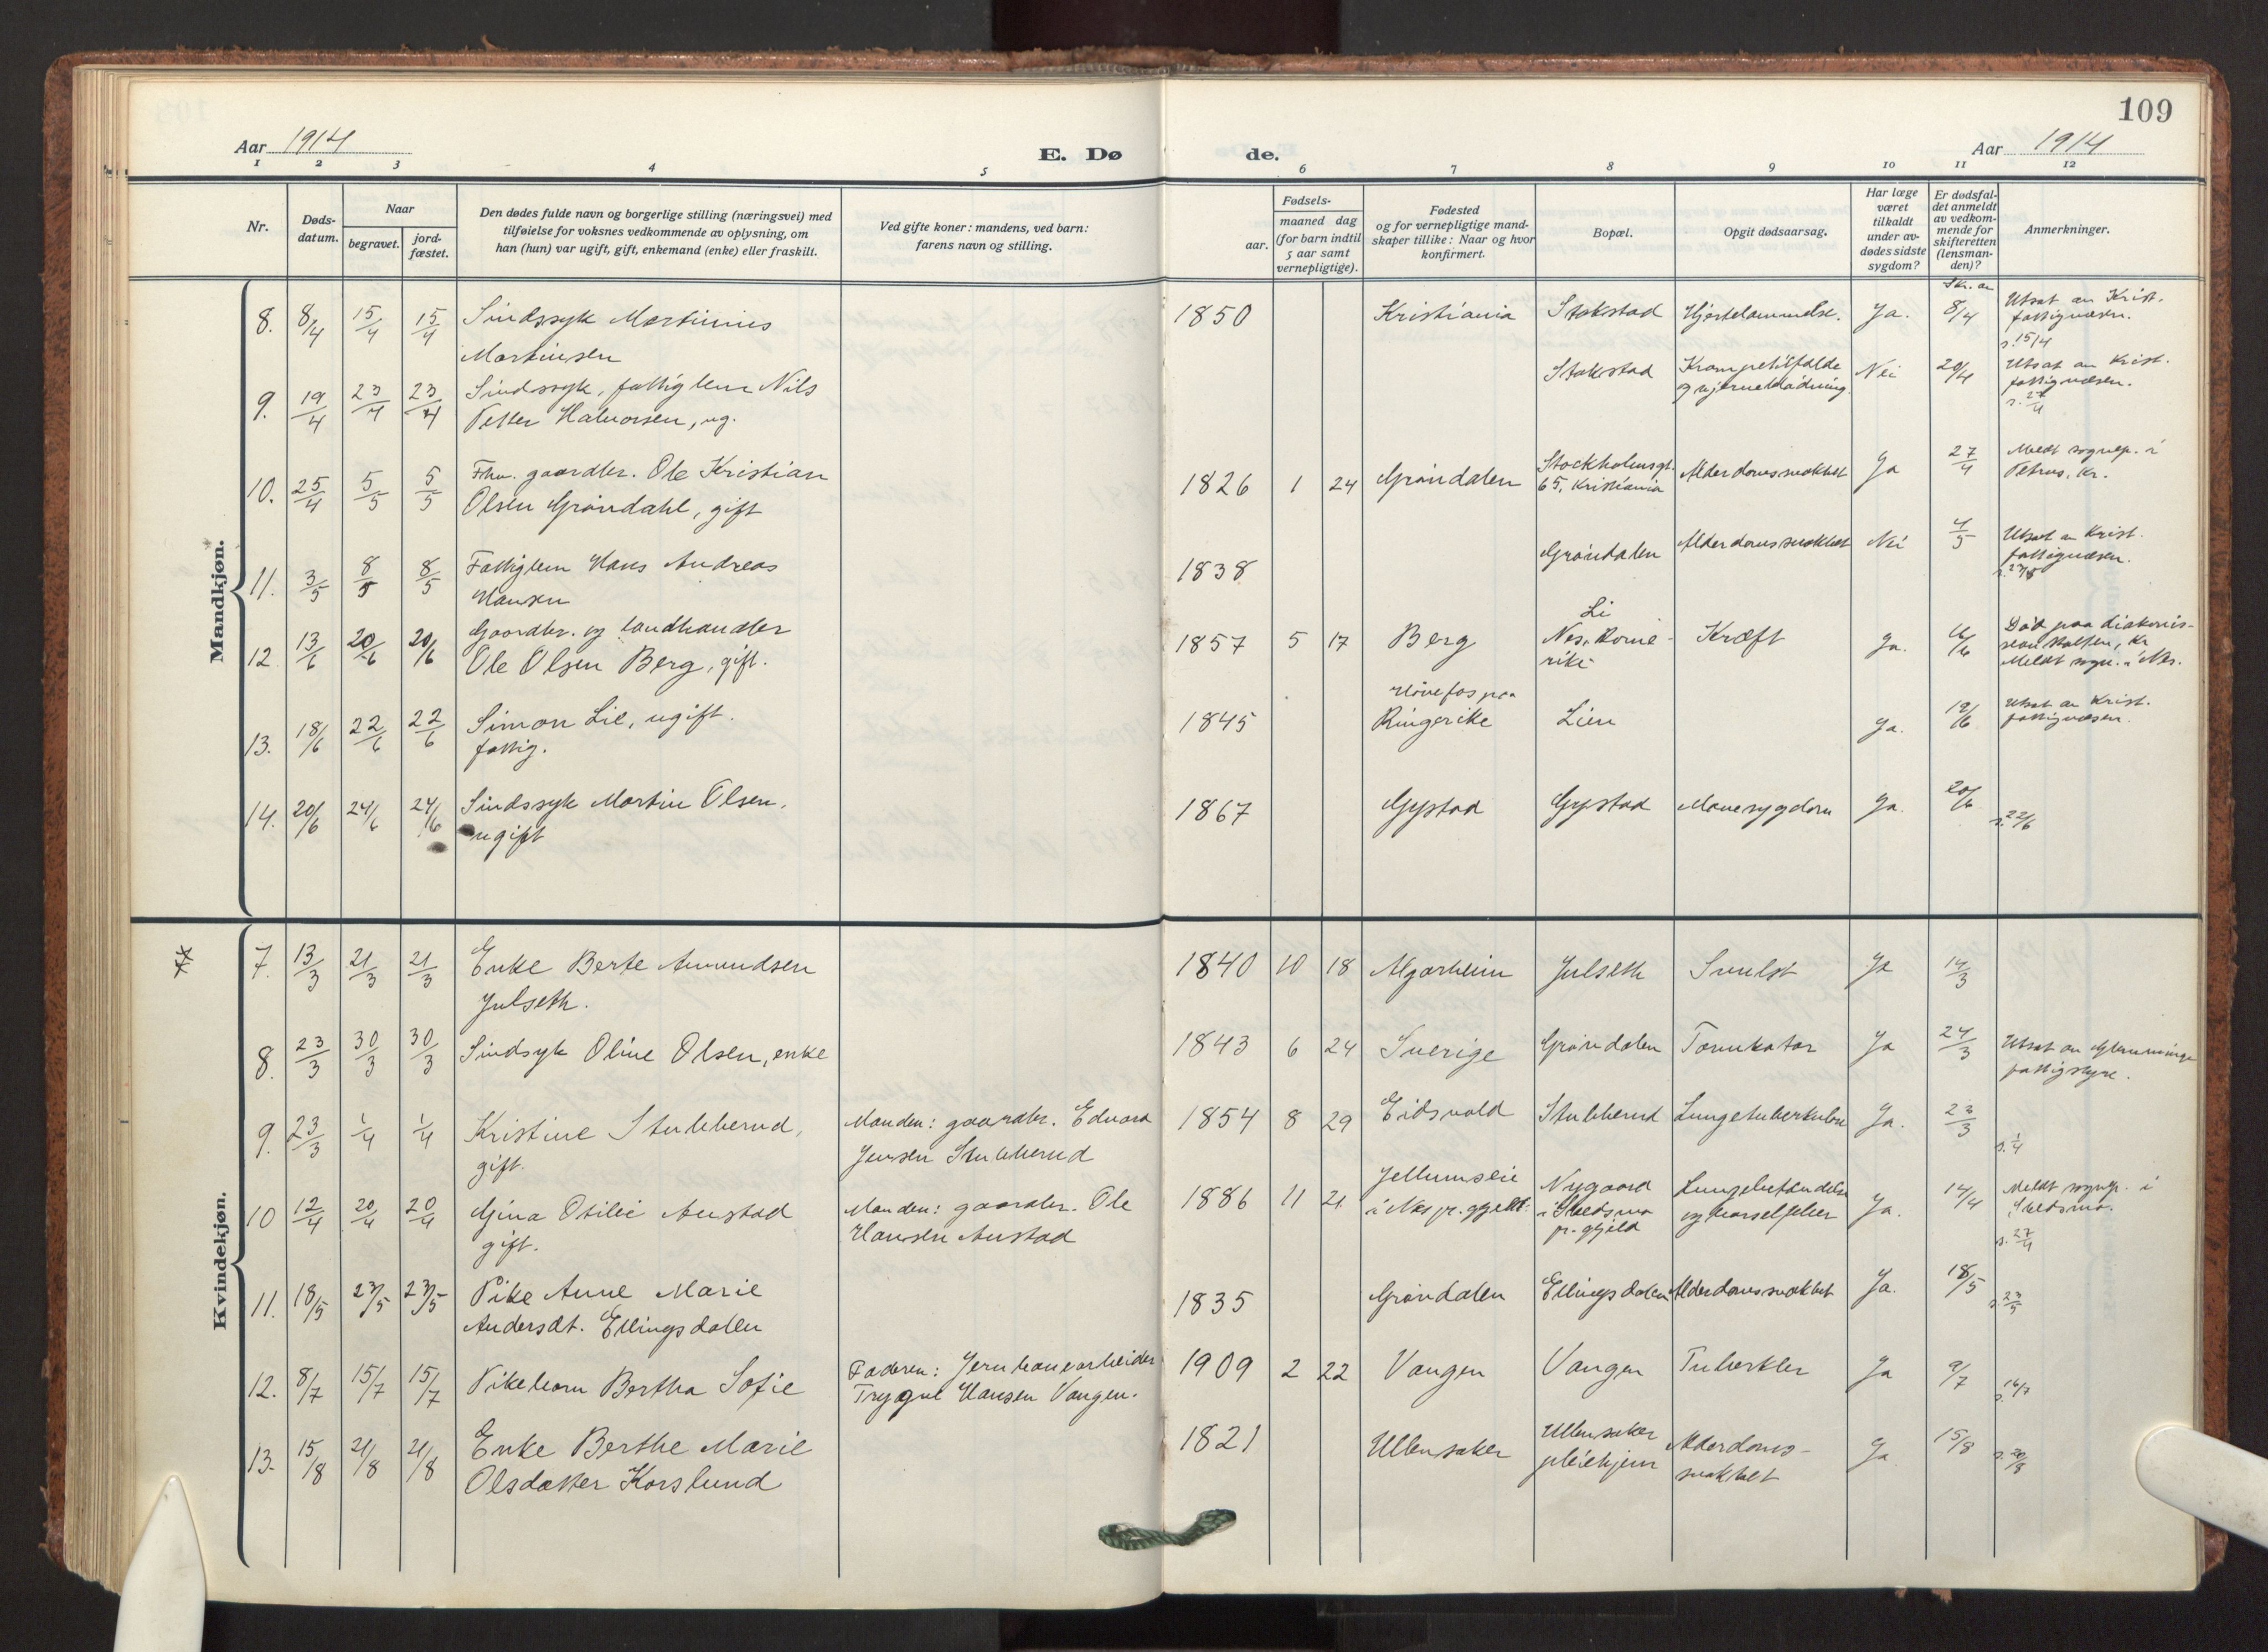 109
Aar 1914
E. Dø
de.
Aar 1914
1 2 3 4 5 6 7 8 9 10 11 12
Nr.
Døds-
datum.
Naar
begravet.
jord-
fæstet.
Den dødes fulde navn og borgerlige stilling (næringsvei) med
tilføielse for voksnes vedkommende av oplysning, om
han (hun) var ugift, gift, enkemand (enke) eller fraskilt.
Ved gifte koner: mandens, ved barn:
farens navn og stilling.
Fødsels-
aar.
maaned dag
(for barn indtil
5 aar samt
vernepligtige).
Fødested
og for vernepligtige mand-
skaper tillike: Naar og hvor
konfirmert.
Bopæl.
Opgit dødsaarsag.
Har læge
været
tilkaldt
under av-
dødes sidste
sygdom?
Er dødsfal-
det anmeldt
av vedkom-
mende for
skifteretten
(lensman-
den)?
Anmerkninger.
Mandkjøn.
8. 8/4 15/4 15/4 Sindssyk Martinius 1850 Kristiania Stokstad Hjertelammelse. Ja. 8/4 Utsat av Krist.
Martinsen fattigvæsen.
s. 15/4
9. 19/4 23/4 23/4 Sindssyk, fattiglem Nils Stokstad Krampetilfælde Nei 20/4 Utsat av Krist.
Petter Halvorsen, ug. og hjerneblødning. fattigvæsen.
s. 27/4
10. 25/4 5/5 5/5 Fhv. gaardbr. Ole Kristian 1826 1 24 Grøndalen Stockholmsgt. Alderdomssvakhet Ja 27/4 Meldt sognep. i
Olsen Grøndahl, gift 65, Kristiania Petrus, Kr.
11. 3/5 8/5 8/5 Fattiglem Hans Andreas 1838 Grøndalen Alderdomssvakhet Nei 4/5 Utsat av Krist.
Hansen fattigvæsen.
12 13/6 20/6 20/6 Gaardbr. og landhandler 1857 5 17 Berg Li Kræft Ja. 16/6 Død paa diakonis-
Ole Olsen Berg, gift. Nes, Rome-
rike Meldt sogn. i Nes.
13. 18/6 22/6 22/6 Simon Lie, ugift. 1845 Hønefos paa Lien Ja. 19/6 Utsat av Krist.
fattig. Ringerike fattigvæsen.
14. 20/6 24/6 24/6 Sindssyk Martin Olsen, 1867 Gystad Gystad Mavesygdom Ja. 20/6 s. 22/6
ugift
Kvindekjøn.
7. 13/3 21/3 21/3 Enke Berte Amundsen 1840 10 18 Algarheim Julseth Svulst Ja 14/3
Julseth.
8. 23/3 30/3 30/3 Sindsyk Oline Olsen, enke 1843 6 24 Sverige Grøndalen Tarmkatar Ja 24/3 Utsat av Glemminge
fattigstyre.
9. 23/3 1/4 1/4 Kristine Stubberud, Manden: gaardbr. Edvard 1854 8 29 Eidsvold Stubberud Lungetuberkulose Ja. 23/3 s. 1/4
gift. Jensen Stubberud
10 12/4 20/4 20/4 Gina Otilie Austad Manden: gaardbr. Ole 1886 11 21 Jellumseie Nygaard Lungebetændelse Ja. 14/4 Meldt sognep. i
gift. Hansen Austad i Nes pr.gjeld. i Skedsmo og barselfeber Skedsmo.
pr.gjeld s. 27/4
11. 18/5 23/5 23/5 Pike Anne Marie 1835 Grøndalen Ellingsdalen Alderdomssvakhet Ja. 18/5 s. 23/5
Andersdt. Ellingsdalen
12. 8/7 15/7 15/7 Pikebarn Bertha Sofie Faderen: Jernbanearbeider 1909 2 22 Vangen Vangen Tuberkler Ja 9/7 s. 16/7
Trygve Hansen Vangen.
13. 15/8 21/8 21/8 Enke Berthe Marie 1821 Ullensaker Ullensaker Alderdoms- Ja 15/8 s. 20/8
Olsdatter Korslund pleiehjem svakhet